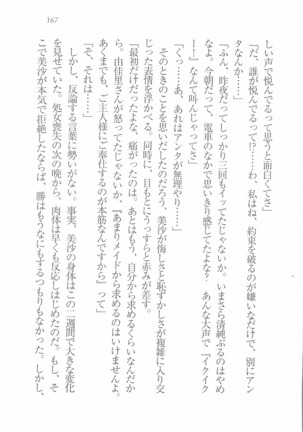 167
しい声で悦んでるって思うと面白くてさ」
「だ、誰が悦んでるって!?……わ、私はね、約束を破るのが嫌いなだけで、別にアン
タなんか……」
「ふん、昨夜だってしっかり三回もイッてたじゃないか。いまさら清純ぶるのはやめ
なよ。今朝だって、電車のなかで思いきり感じてたよな?　あんな大声で『イクイク
ー!』なんて叫んじゃってさ」
「くっ……あ、あれはアンタが無理やり……」
そのときのことを思いだしたのだろう、美沙が悔しさと恥ずかしさが複雑に入り交
じった表情を浮かべる。同時に、目もとにうっすらと赤みが差す。
「最初だけだったよな、痛がったのは。あとはもう、自分から求めるくらいなんだか
ら。由佳里さんが怒ってたじゃないか、『あまりメイドから求めるのはいけませんよ。
あくまでも、ご主人様にご奉仕するのが本筋なんですから』って」
「そ、それは……」
しかし、反論する言葉に勢いがない。事実、美沙の身体はこの一週間で大きな変化
を見せていた。処女喪失の次の晩から、肉体は早くも反応しはじめたのだ。もし、そ
こで美沙が本気で拒絶したならば、勝はもうなにもするつもりもなかった。しかし、